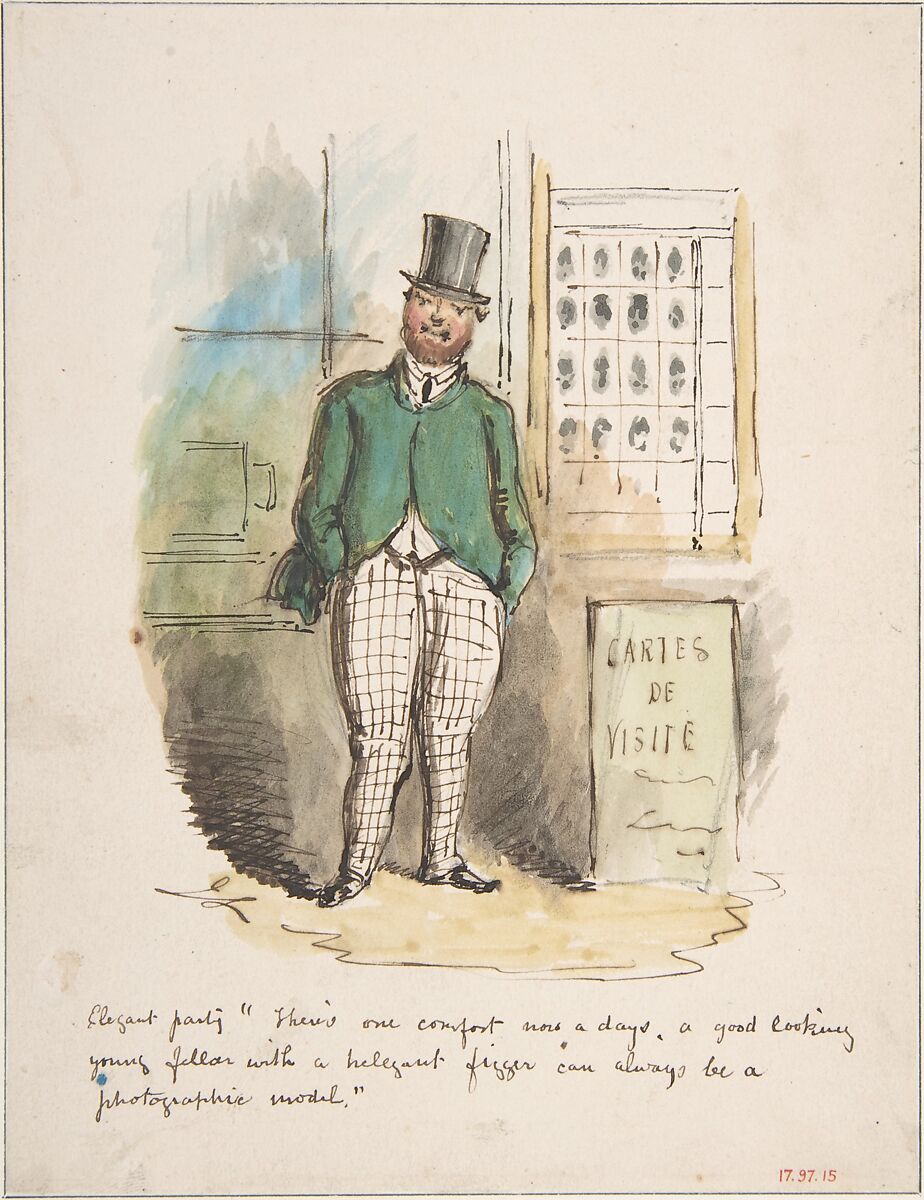 CARTES
DE
VISITE
Elegant party " There's one comfort now a days, a good looking
young fellar with a helegant figger can always be a
photographic model."
17.97.15